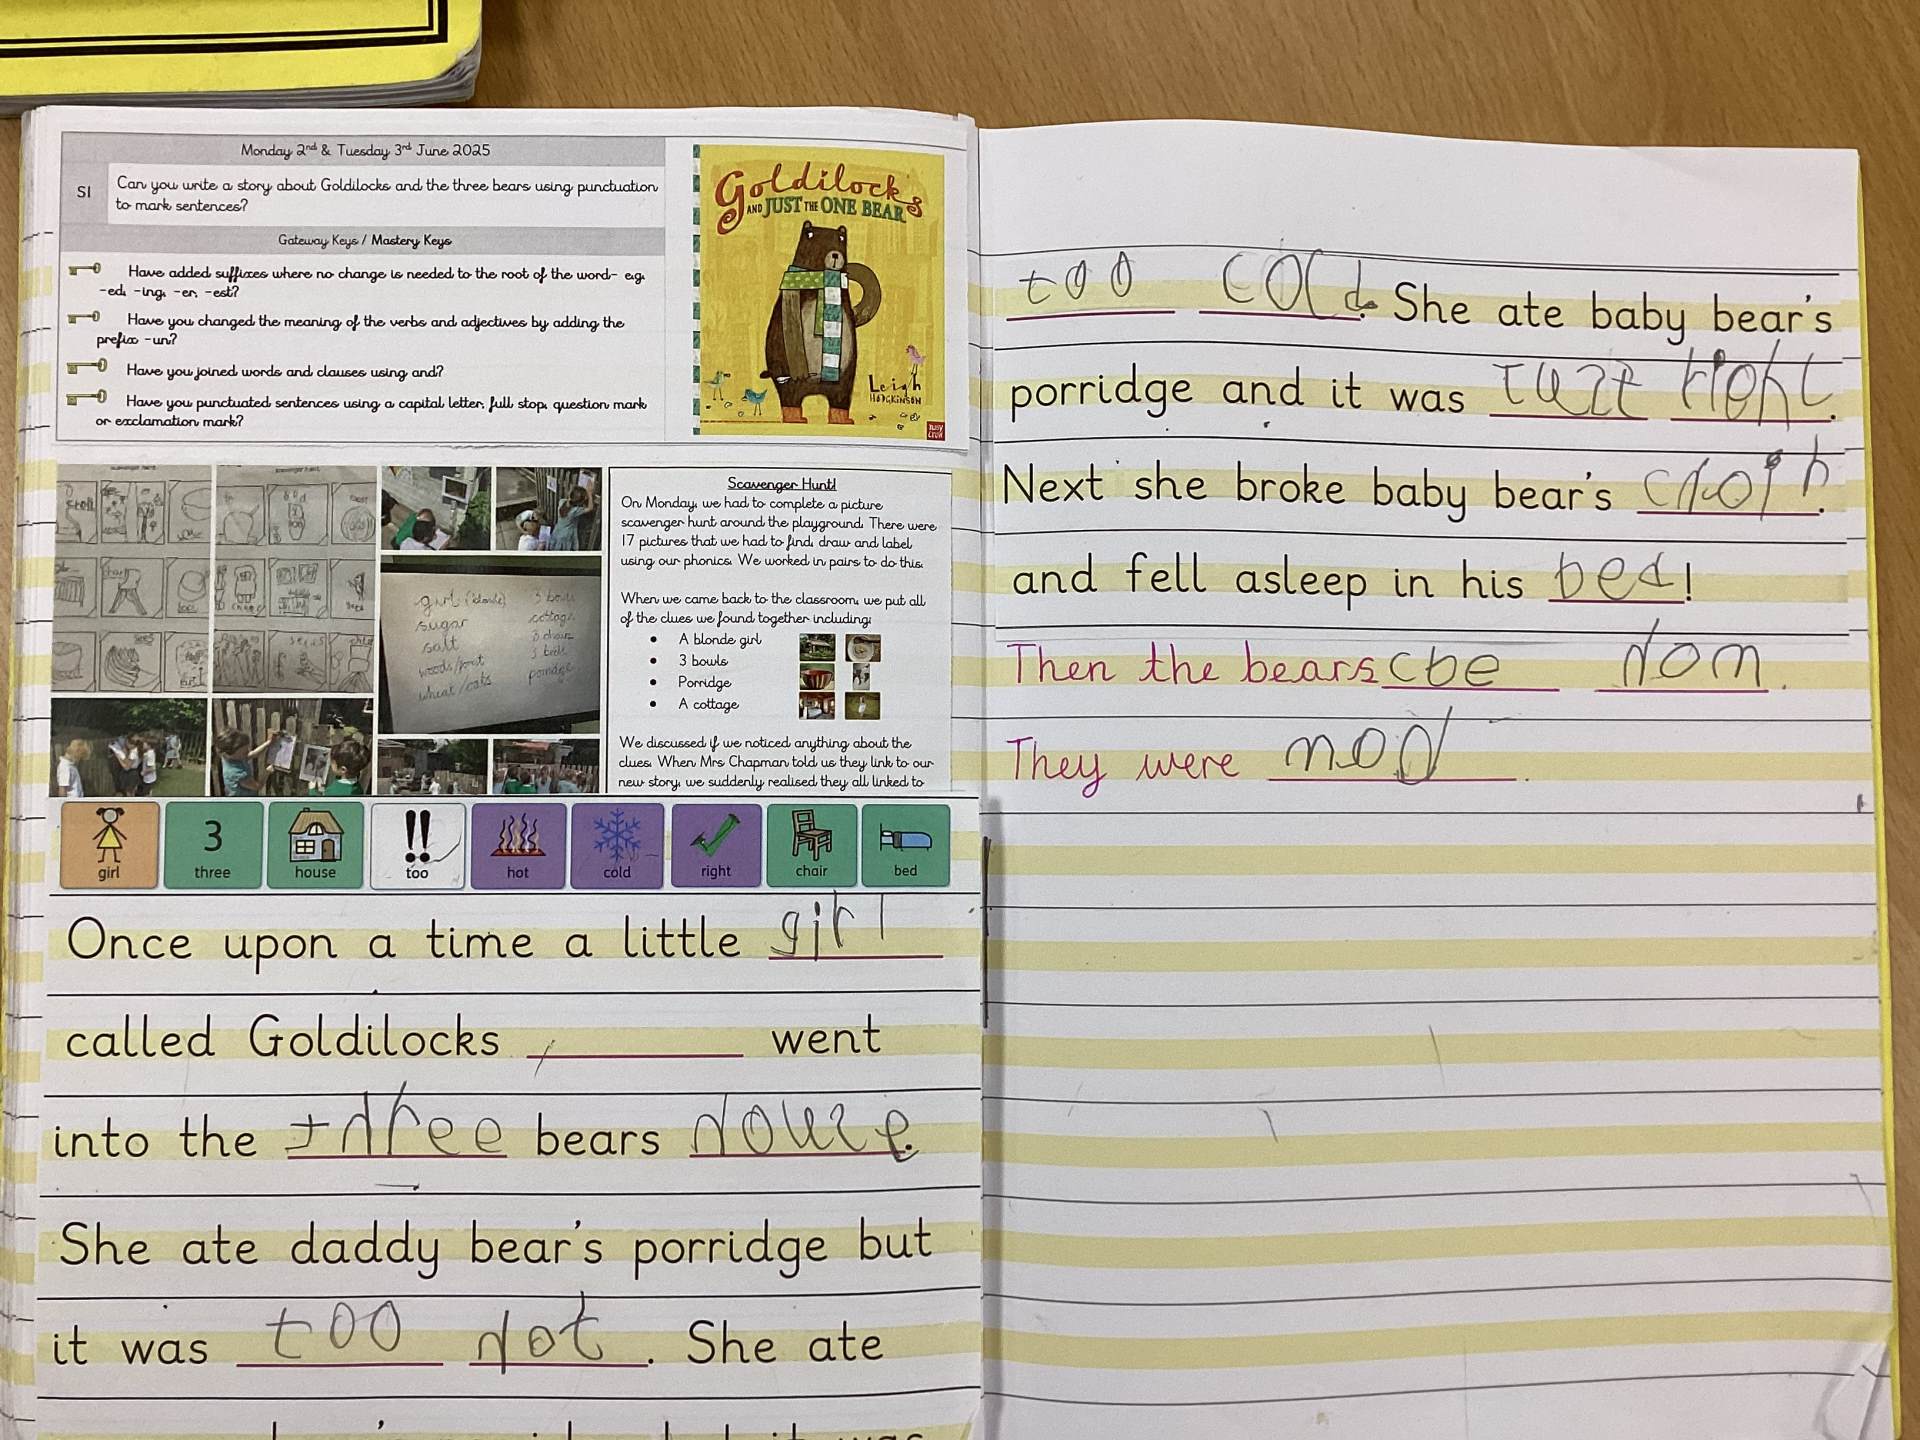 Monday 2nd & Tuesday 3rd June 2025
SI
Can you write a story about Goldilocks and the three bears using punctuation
to mark sentences?
Gateway Keys / Mastery Keys
Have added suffixes where no change is needed to the root of the word- e.g.
-ed, -ing, -er, -est?
Have you changed the meaning of the verbs and adjectives by adding the
prefix -un?
Have you joined words and clauses using and?
Have you punctuated sentences using a capital letter, full stop, question mark
or exclamation mark?
Goldilocks
AND JUST THE ONE BEAR
Leigh
HODGKINSON
nosy
crow
girl (blonde)
sugar
salt
wheat/oats
3 bowls
cottage
3 chairs
3 beds
porridge
Scavenger Hunt!
On Monday, we had to complete a picture
scavenger hunt around the playground. There were
17 pictures that we had to find, draw and label
using our phonics. We worked in pairs to do this.
When we came back to the classroom, we put all
of the clues we found together including:
• A blonde girl
• 3 bowls
• Porridge
• A cottage
We discussed if we noticed anything about the
clues. When Mrs Chapman told us they link to our
new story, we suddenly realised they all linked to
girl
3
three
house
!!
too
hot
cold
right
chair
bed
Once upon a time a little girl
called Goldilocks went
into the three bears house.
She ate daddy bear's porridge but
it was too hot. She ate
too cold. She ate baby bear's
porridge and it was right.
Next she broke baby bear's
and fell asleep in his bed!
Then the bears cbe hom.
They were